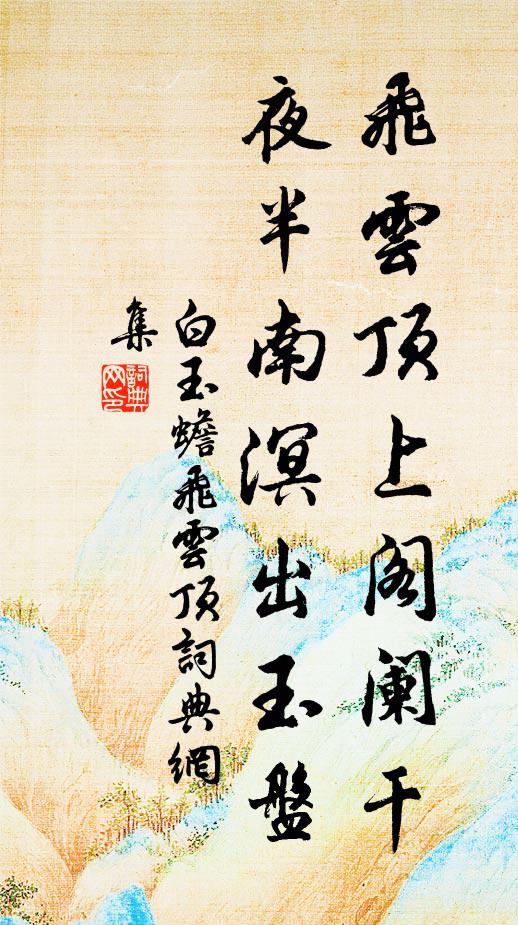 飛雲頂上閣阑干
夜半南溟出玉盤
白玉蟾飛雲頂詞典網
集
詞典网印